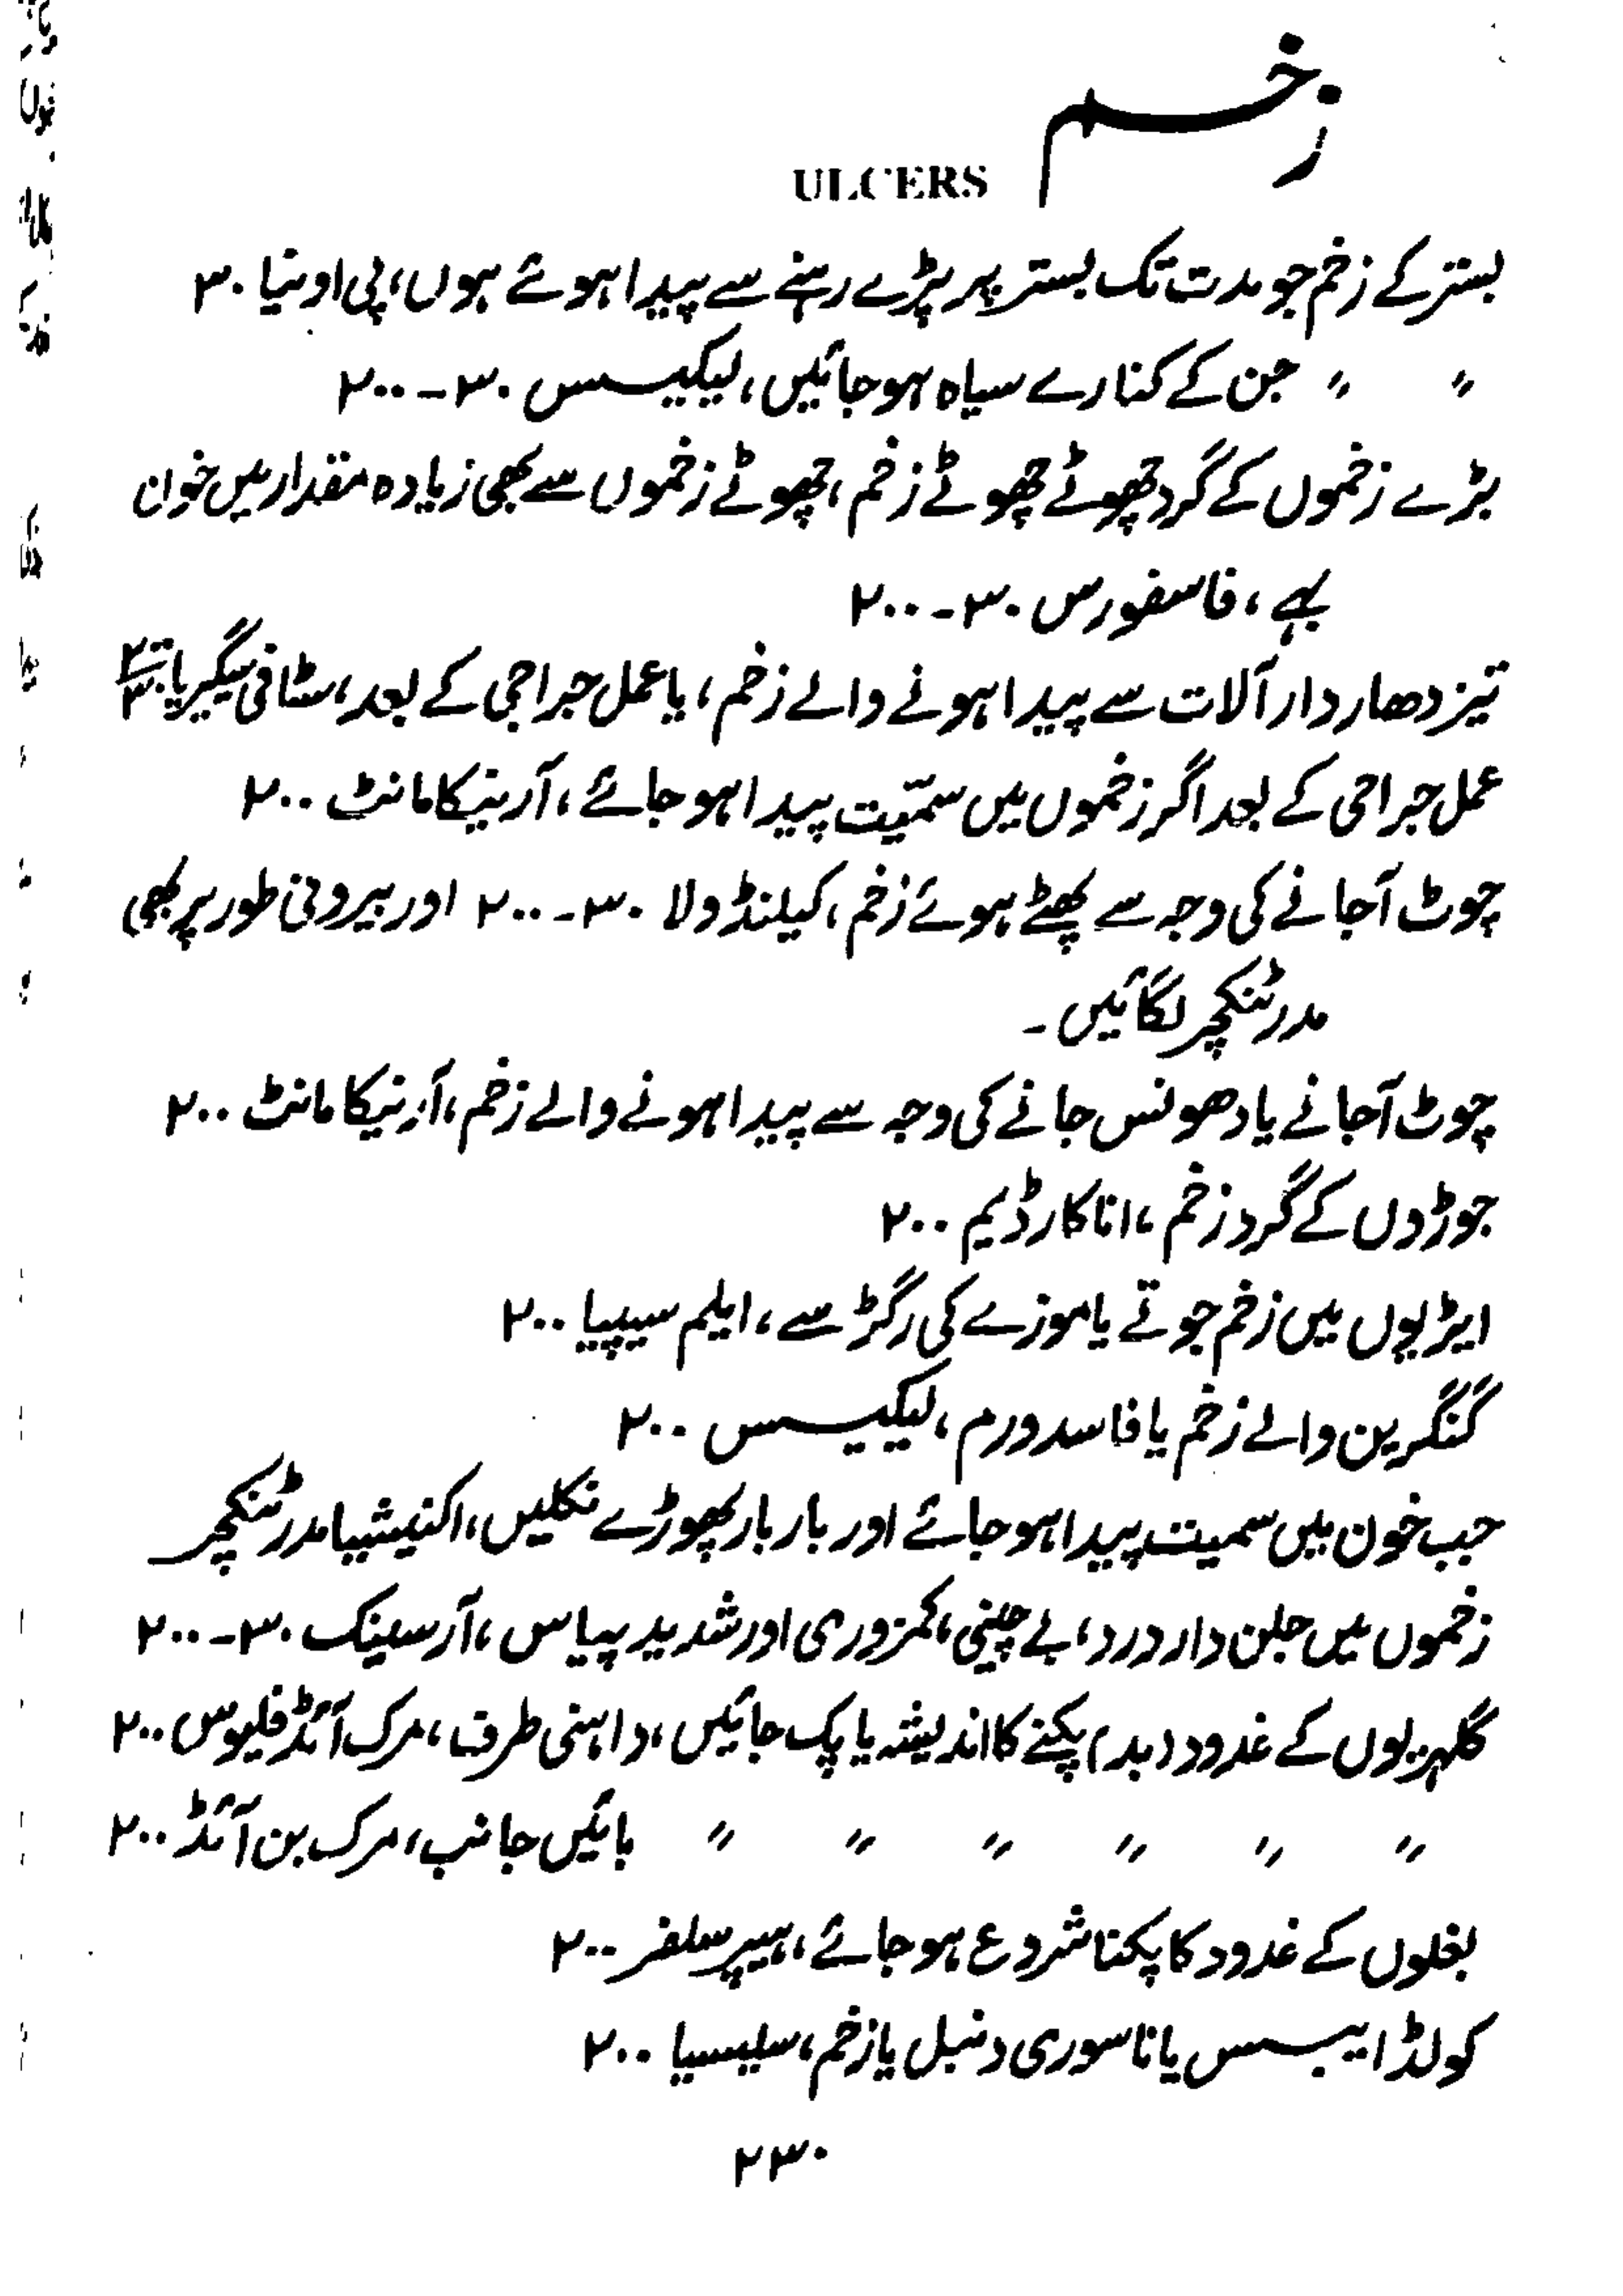 زخم
ULCERS
بستر کے زخم جو مدت تک بستر پر پڑے رہنے سے پیدا ہوئے ہوں، پی اونیا ۳۰
〃 〃 جن کے کنارے سیاہ ہو جائیں، لیکیسس ۳۰-۲۰۰
بڑے زخموں کے گرد چھوٹے چھوٹے زخم، چھوٹے زخموں سے بھی زیادہ مقدار میں خون
بہے، فاسفورس ۳۰-۲۰۰
تیز دھار دار آلات سے پیدا ہونے والے زخم، یا عمل جراحی کے بعد، سٹافی سیگیریا
عمل جراحی کے بعد اگر زخموں میں سمّیت پیدا ہو جائے، آرنیکا مانٹ ۲۰۰
چوٹ آجانے کی وجہ سے پھٹے ہوئے زخم، کیلنڈولا ۳۰-۲۰۰ اور بیرونی طور پر بھی
مدر ٹنکچر لگائیں۔
چوٹ آجانے یا دھونس جانے کی وجہ سے پیدا ہونے والے زخم، آرنیکا مانٹ ۲۰۰
جوڑوں کے گرد زخم، اناکارڈیم ۲۰۰
ایڑیوں میں زخم جوتے یا موزے کی رگڑ سے، ایلم سیپیا ۲۰۰
گنگرین والے زخم یا فاسد ورم، لیکیسس ۲۰۰
جب خون میں سمیت پیدا ہو جائے اور بار بار پھوڑے نکلیں، اکنیشیا مدر ٹنکچر
زخموں میں جلن دار درد، بے چینی، کمزوری اور شدید پیاس، آرسینک ۳۰-۲۰۰
گلہڑیوں کے غدود (بد) پکنے کا اندیشہ یا پک جائیں، داہنی طرف، مرک آئڈ فلیوس ۲۰۰
〃 〃 〃 〃 〃 〃 بائیں جانب، مرک بن آئڈ ۲۰۰
بغلوں کے غدود کا پکنا شروع ہو جائے، ہیپر سلفر ۲۰۰
کولڈ ایبسس یا ناسوری دنبل یا زخم، سلیسیا ۲۰۰
۲۳۰